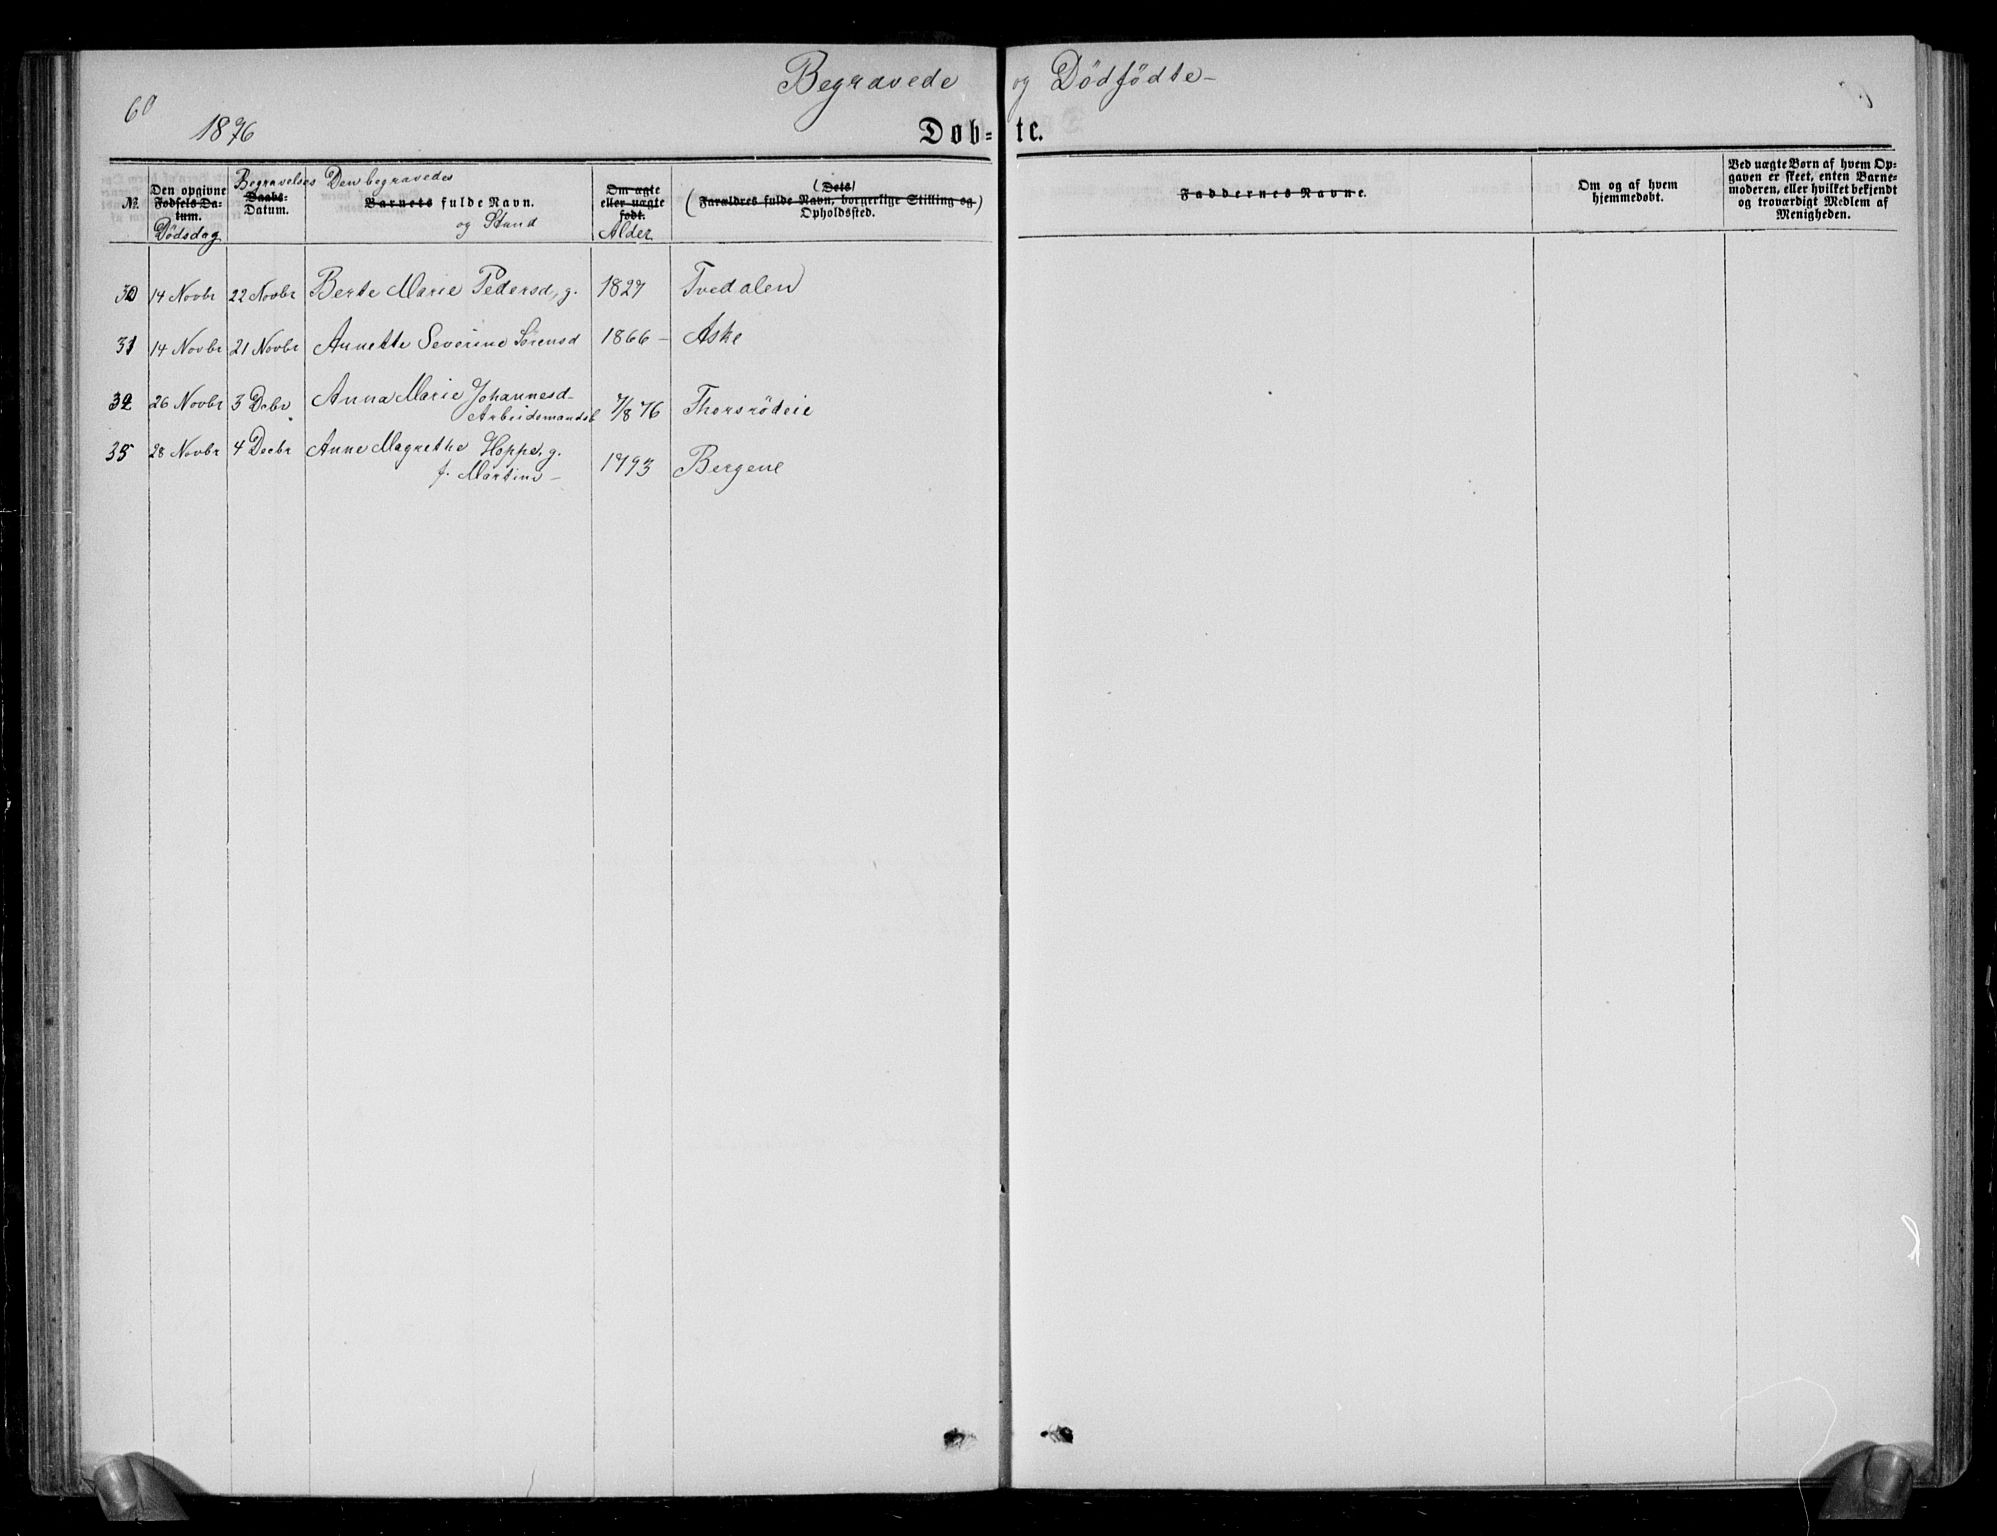 Begravede og Dødfødte-
60
1876
Døb- te.
No. Den opgivne Fødsels Da- tum. Dødsdag
Begravelses Daabs- Datum.
Den begravedes Barnets fulde Navn. og Stand
Om ægte eller uægte født. Alder
(Dets) (Forældres fulde Navn, borgerlige Stilling og) Opholdssted.
Faddernes Navne.
Om og af hvem hjemmedøbt.
Ved uægte Børn af hvem Op- gaven er skeet, enten Barne- moderen, eller hvilket bekjendt og troværdigt Medlem af Menigheden.
30 14 Novbr 22 Novbr Berte Marie Pedersd, g. 1827 Tvedalen
31 14 Novbr 21 Novbr Annette Severine Sørensd 1866 - Aske
32 26 Novbr 3 Debr Anna Marie Johannesd-
Arbeidsmandsb 7/8 76 Thorsrødeie
33 28 Novbr 4 Decbr Anne Magrethe Hoppe, g.
f. Martins - 1793 Bergene